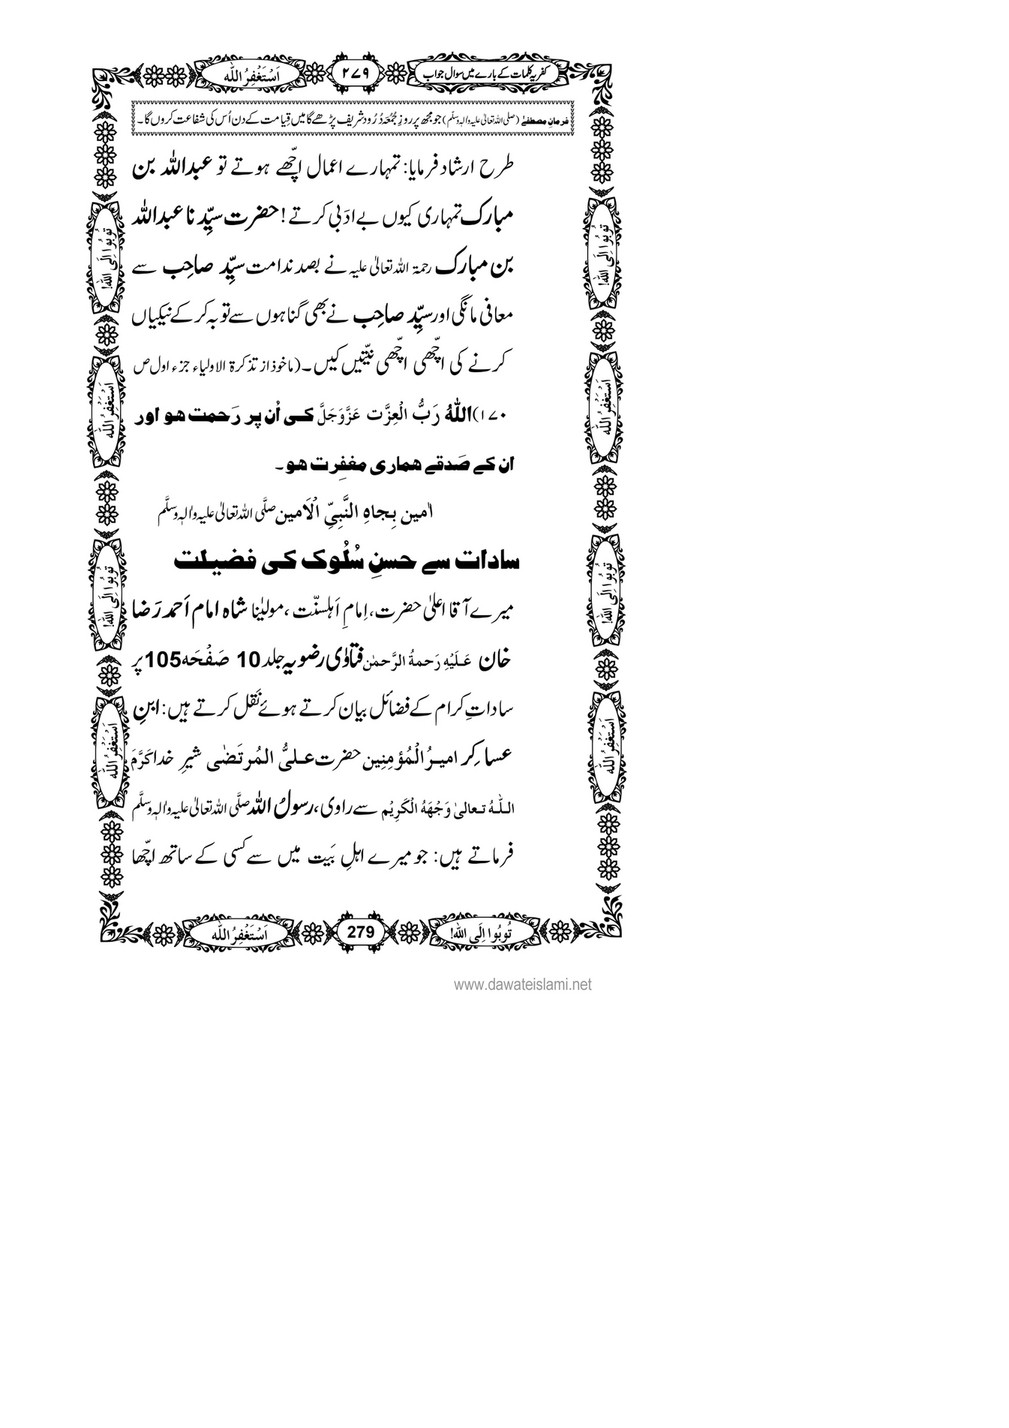 کفریہ کلمات کے بارے میں سوال جواب
۲۷۹
اَسْتَغْفِرُ اللّٰه
فرمانِ مصطفیٰ (صلی اللہ تعالیٰ علیہ والہ وسلّم) جو مجھ پر روزِ جُمُعہ دُرُود شریف پڑھے گا میں قِیامت کے دن اُس کی شفاعت کروں گا۔
طرح ارشاد فرمایا: تمہارے اعمال اچّھے ہوتے تو عبداللہ بن
مبارک تمہاری کیوں بے ادَبی کرتے! حضرت سیِّدنا عبداللہ
بن مبارک رحمۃ اللہ تعالیٰ علیہ نے بصد ندامت سیِّد صاحِب سے
معافی مانگی اور سیِّد صاحِب نے بھی گناہوں سے توبہ کر کے نیکیاں
کرنے کی اچّھی اچّھی نیّتیں کیں۔ (ماخوذ از تذکرۃ الاولیاء جزء اول ص
۱۷۰) اللہُ رَبُّ الْعِزَّت عَزَّوَجَلَّ کی اُن پر رَحمت ہو اور
ان کے صَدقے ہماری مغفِرت ہو۔
اٰمین بِجاہِ النَّبِیِّ الْاَمین صلَّی اللہ تعالیٰ علیہ واٰلہٖ وسلَّم
سادات سے حسنِ سُلُوک کی فضیلت
میرے آقا اعلیٰ حضرت، اِمامِ اَہلسنّت، مولیٰنا شاہ امام اَحمد رَضا
خان عَلَیْہِ رَحمۃُ الرَّحمٰن فتاوٰی رضویہ جلد 10 صَفْحَہ 105 پر
ساداتِ کرام کے فضائل بیان کرتے ہوئے نَقل کرتے ہیں: ابنِ
عساکِر امیرُ الْمُؤمِنِین حضرت علیُّ المُرتَضٰی شیرِ خدا کَرَّمَ
اللہُ تعالیٰ وَجْہَہُ الْکَرِیْم سے راوی، رسولُ اللہ صلَّی اللہ تعالیٰ علیہ واٰلہٖ وسلَّم
فرماتے ہیں: جو میرے اہلِ بَیت میں سے کسی کے ساتھ اچّھا
تُوبُوا اِلَی اللّٰه!
اَسْتَغْفِرُ اللّٰه
تُوبُوا اِلَی اللّٰه!
اَسْتَغْفِرُ اللّٰه
تُوبُوا اِلَی اللّٰه!
اَسْتَغْفِرُ اللّٰه
تُوبُوا اِلَی اللّٰه!
اَسْتَغْفِرُ اللّٰه
تُوبُوا اِلَی اللّٰه!
279
اَسْتَغْفِرُ اللّٰه
www.dawateislami.net